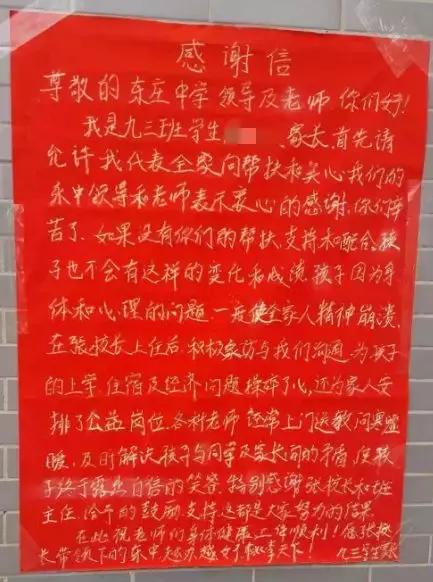 感谢信
尊敬的东庄中学领导及老师 你们好!
我是九三班学生 家长,首先请
允许我代表全家向帮扶和关心我们的
东中领导和老师表示衷心的感谢,你们辛
苦了,如果没有你们的帮扶,支持和配合,孩
子也不会有这样的变化和成绩,孩子因为身
体和心理的问题,一度使全家人精神崩溃,
在张校长上任后,积极家访与我们沟通,为孩子
的上学,住宿及经济问题操碎了心,还为家人安
排了公益岗位,各科老师 还常上门送教,问寒嘘
暖,及时解决孩子与同学及家长间的矛盾,使孩
子终于露出自信的笑容,特别感谢张校长和班
主任,给予的鼓励,支持这都是大家努力的结果,
在此祝老师们身体健康工作顺利!在张校
长带领下的东中越办越好桃李天下!
九三学生家长